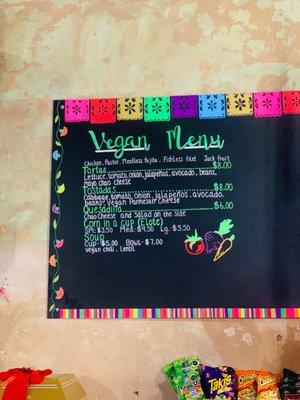 Vegan Menu
Chicken, Pastor, Meatless fajita, Fishless filet Jack fruit
Tortas $8.00
Lettuce, tomato, onion, jalapeños, avocado, beans,
Mayo chao cheese
Tostadas $8.00
Cabbage, tomato, onion, jalapeños, avocado,
beans, Vegan Parmesan Cheese
Quesadilla $6.00
Chao Cheese and Salad on the side
Corn in a cup (Elote)
Sm: $3.50 Med: $4.50 Lg: $5.50
Soup
Cup- $5.00 Bowl- $7.00
vegan chili, Lentil
Takis